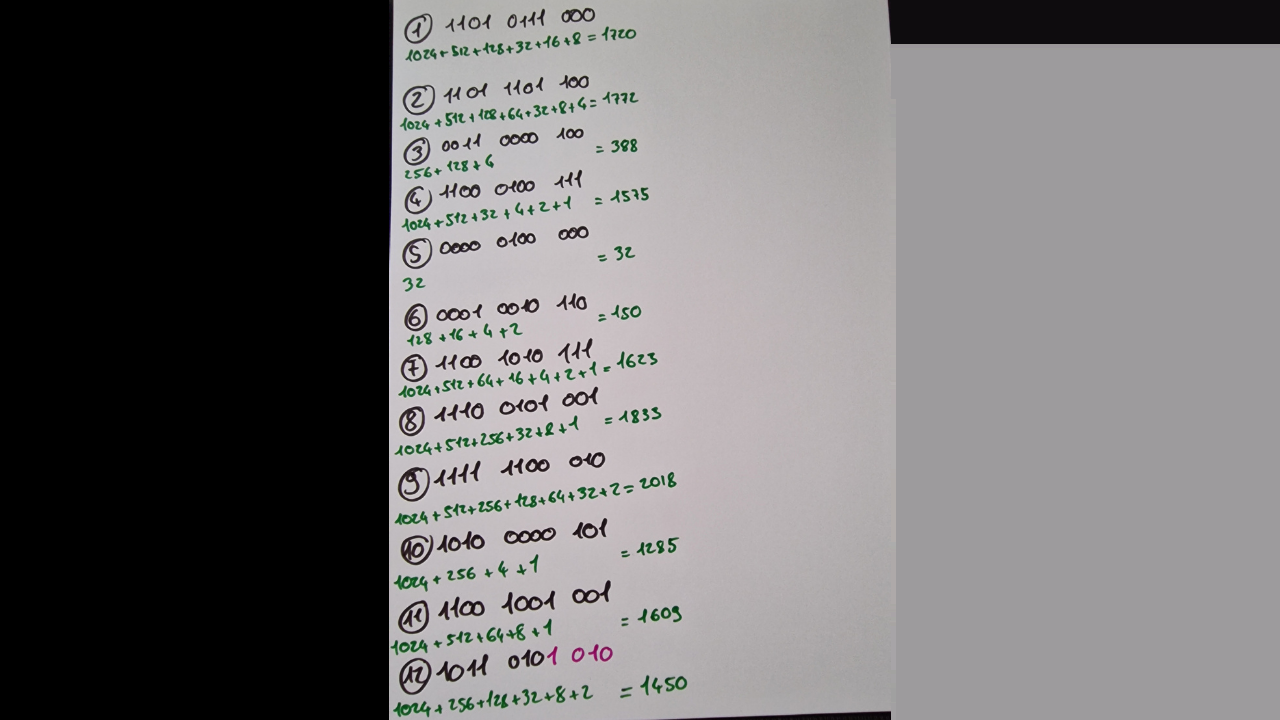 1 1101 0111 000
1024+512+128+32+16+8=1720
2 1101 1101 100
1024+512+128+64+32+8+4=1772
3 0011 0000 100
256+128+4 =388
4 1100 0100 111
1024+512+32+4+2+1 =1575
5 0000 0100 000
32 =32
6 0001 0010 110
128+16+4+2 =150
7 1100 1010 111
1024+512+64+16+4+2+1=1623
8 1110 0101 001
1024+512+256+32+8+1 =1833
9 1111 1100 010
1024+512+256+128+64+32+2=2018
10 1010 0000 101
1024+256+4+1 =1285
11 1100 1001 001
1024+512+64+8+1 =1609
12 1011 0101 010
1024+256+128+32+8+2 =1450